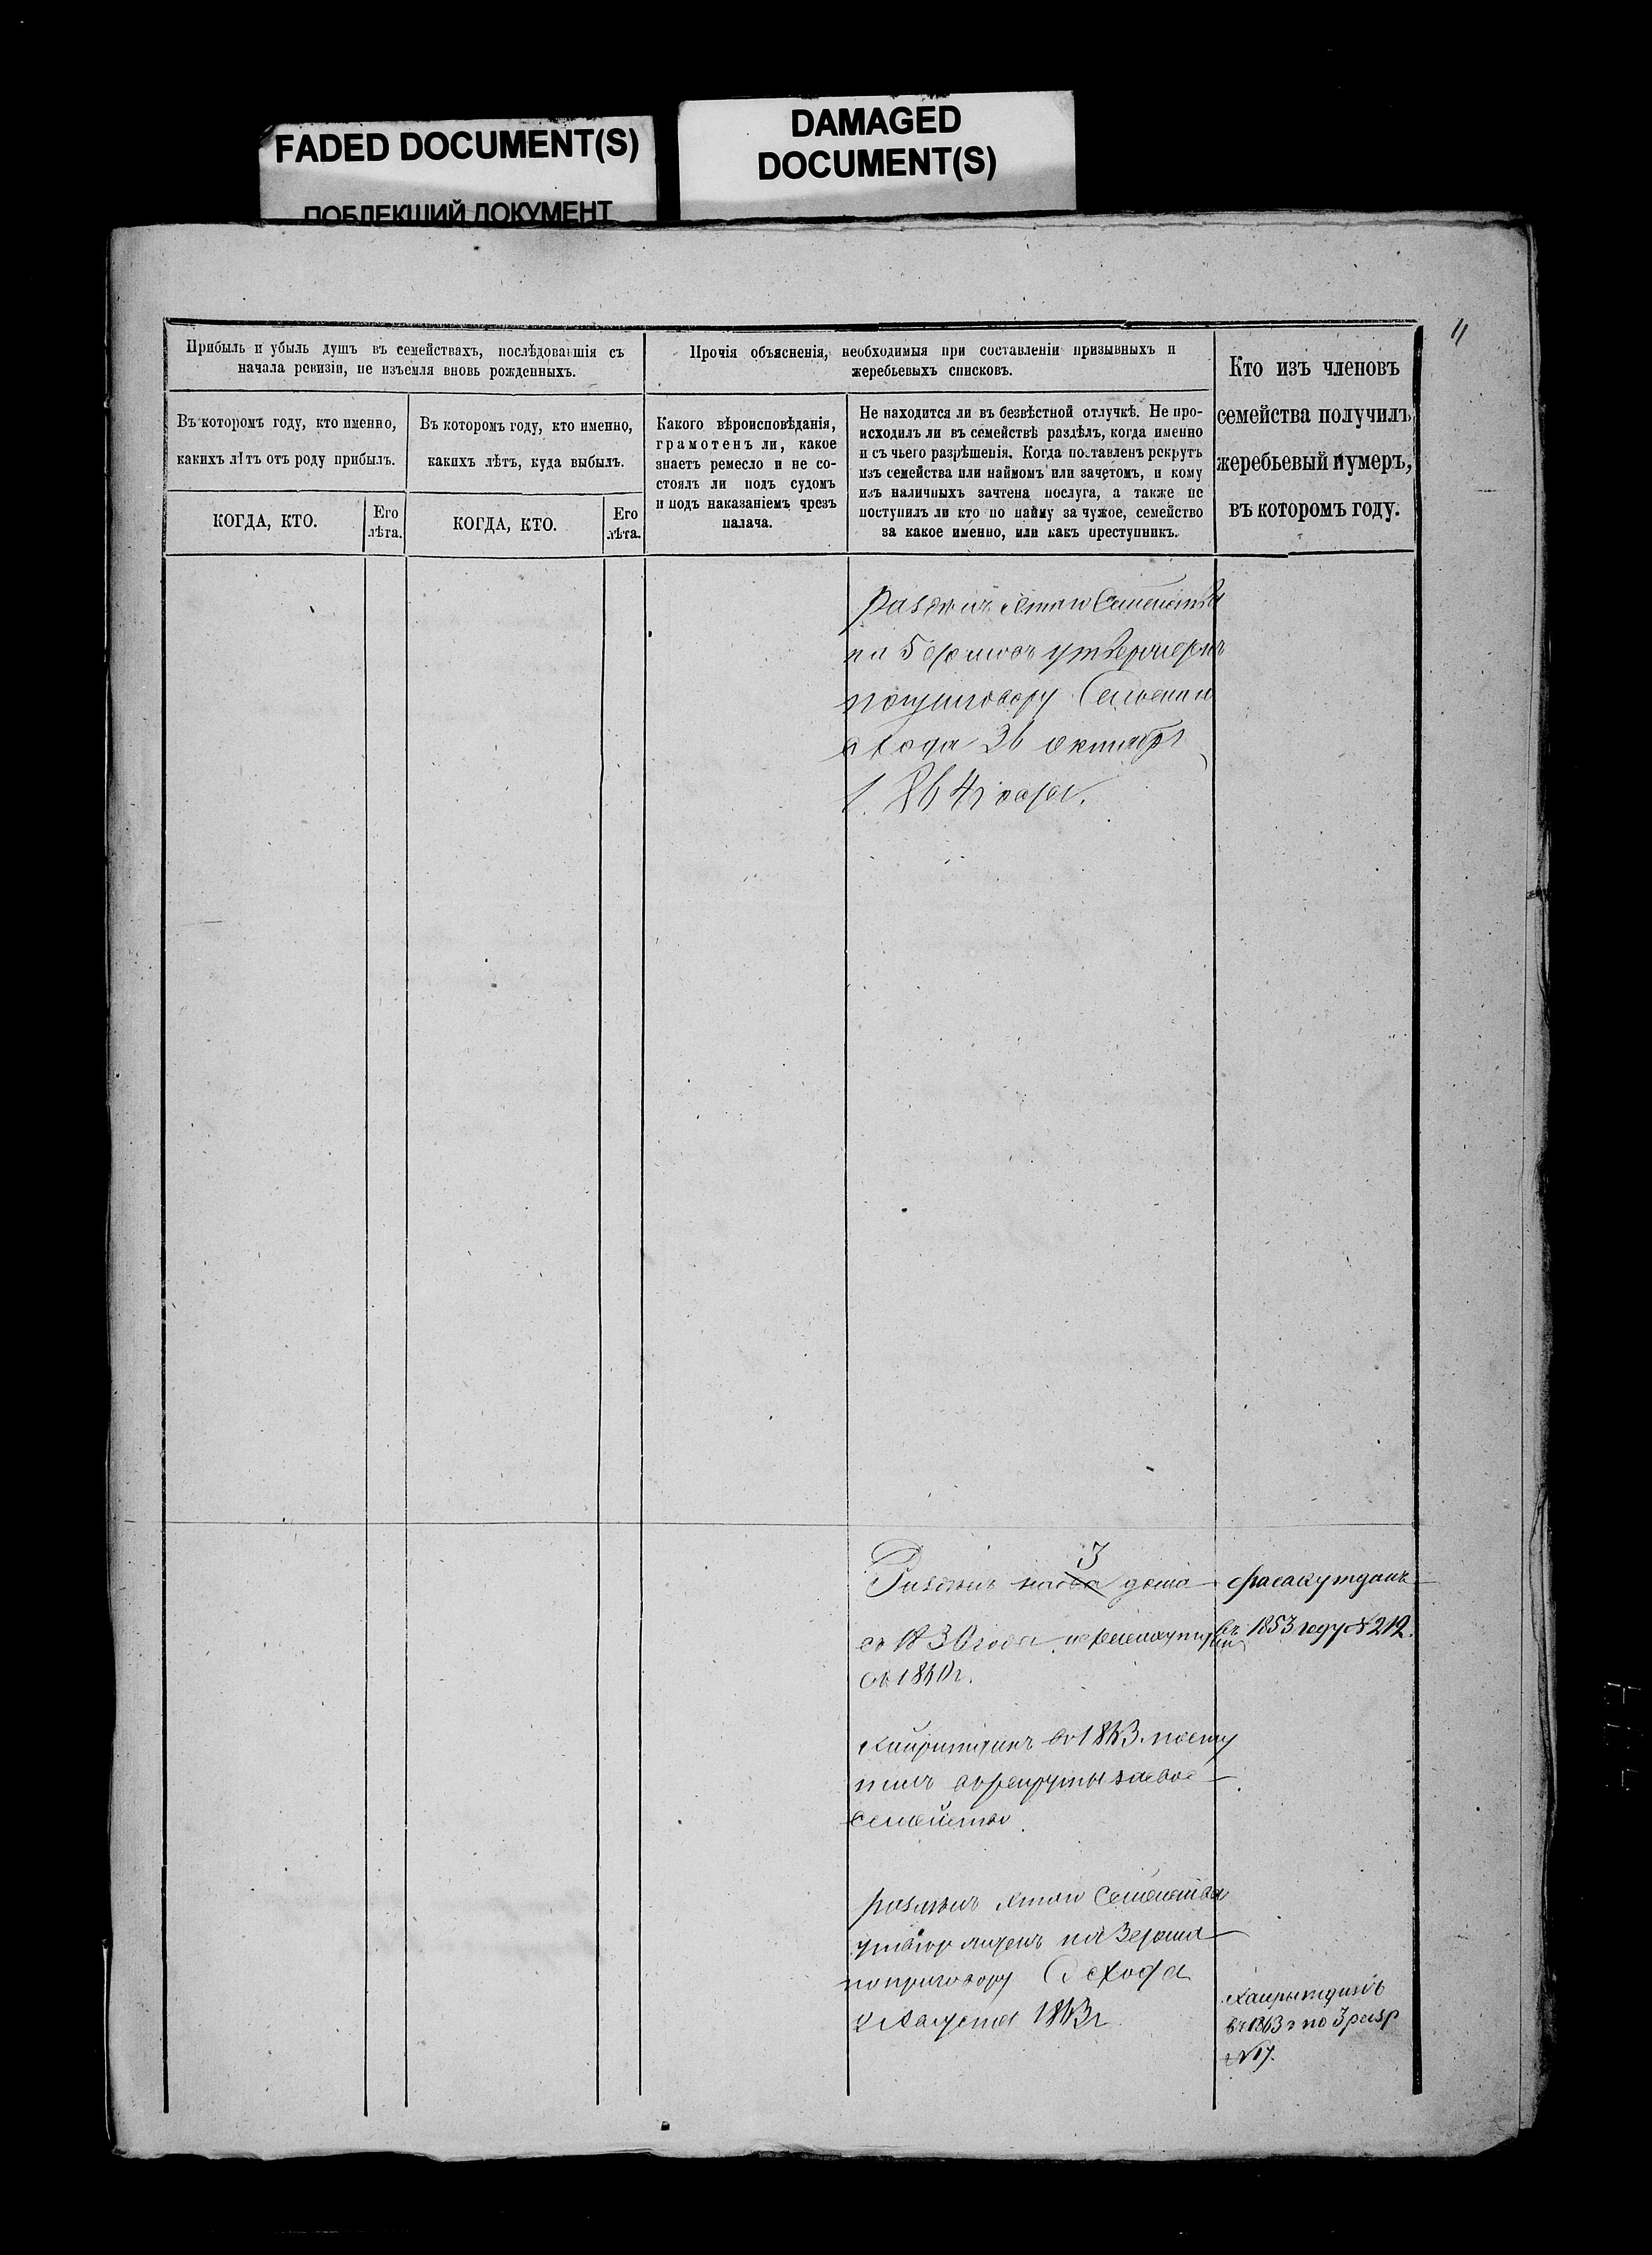 FADED DOCUMENT(S)
ПОБЛЕКШИЙ ДОКУМЕНТ
DAMAGED
DOCUMENT(S)
Прибыль и убыль душъ въ семействахъ, послѣдовавшія съ
начала ревизіи, не изъемля вновь рожденныхъ.
Въ которомъ году, кто именно,
какихъ лѣтъ отъ роду прибылъ.
КОГДА, КТО.
Его
лѣта.
Въ которомъ году, кто именно,
какихъ лѣтъ, куда выбылъ.
КОГДА, КТО.
Его
лѣта.
Прочія объясненія, необходимыя при составленіи призывныхъ и
жеребьевыхъ списковъ.
Какого вѣроисповѣданія,
грамотенъ ли, какое
знаетъ ремесло и не со-
стоялъ ли подъ судомъ
и подъ наказаніемъ чрезъ
палача.
Не находится ли въ безвѣстной отлучкѣ. Не про-
исходилъ ли въ семействѣ раздѣлъ, когда именно
и съ чьего разрѣшенія. Когда поставленъ рекрутъ
изъ семейства или наймомъ или зачетомъ, и кому
изъ наличныхъ зачтена послуга, а также не
поступилъ ли кто по найму за чужое, семейство
за какое именно, или какъ преступникъ.
Кто изъ членовъ
семейства получилъ
жеребьевый нумеръ,
въ которомъ году.
11
Раздѣлъ семейства
на 5 домовъ утвержденъ
по приговору Сельскаго
схода 26 октября
1864 года.
3
Раздѣлъ на два дома
съ 1830 года
въ 1853 году № 212.
въ 1863 посту
пилъ в рекруты за свое
семейство
раздѣлъ семейства
утвержденъ на 3 дома
по приговору Схода
Августа 1863 г
въ 1863 г по 3 разр
№ 17.